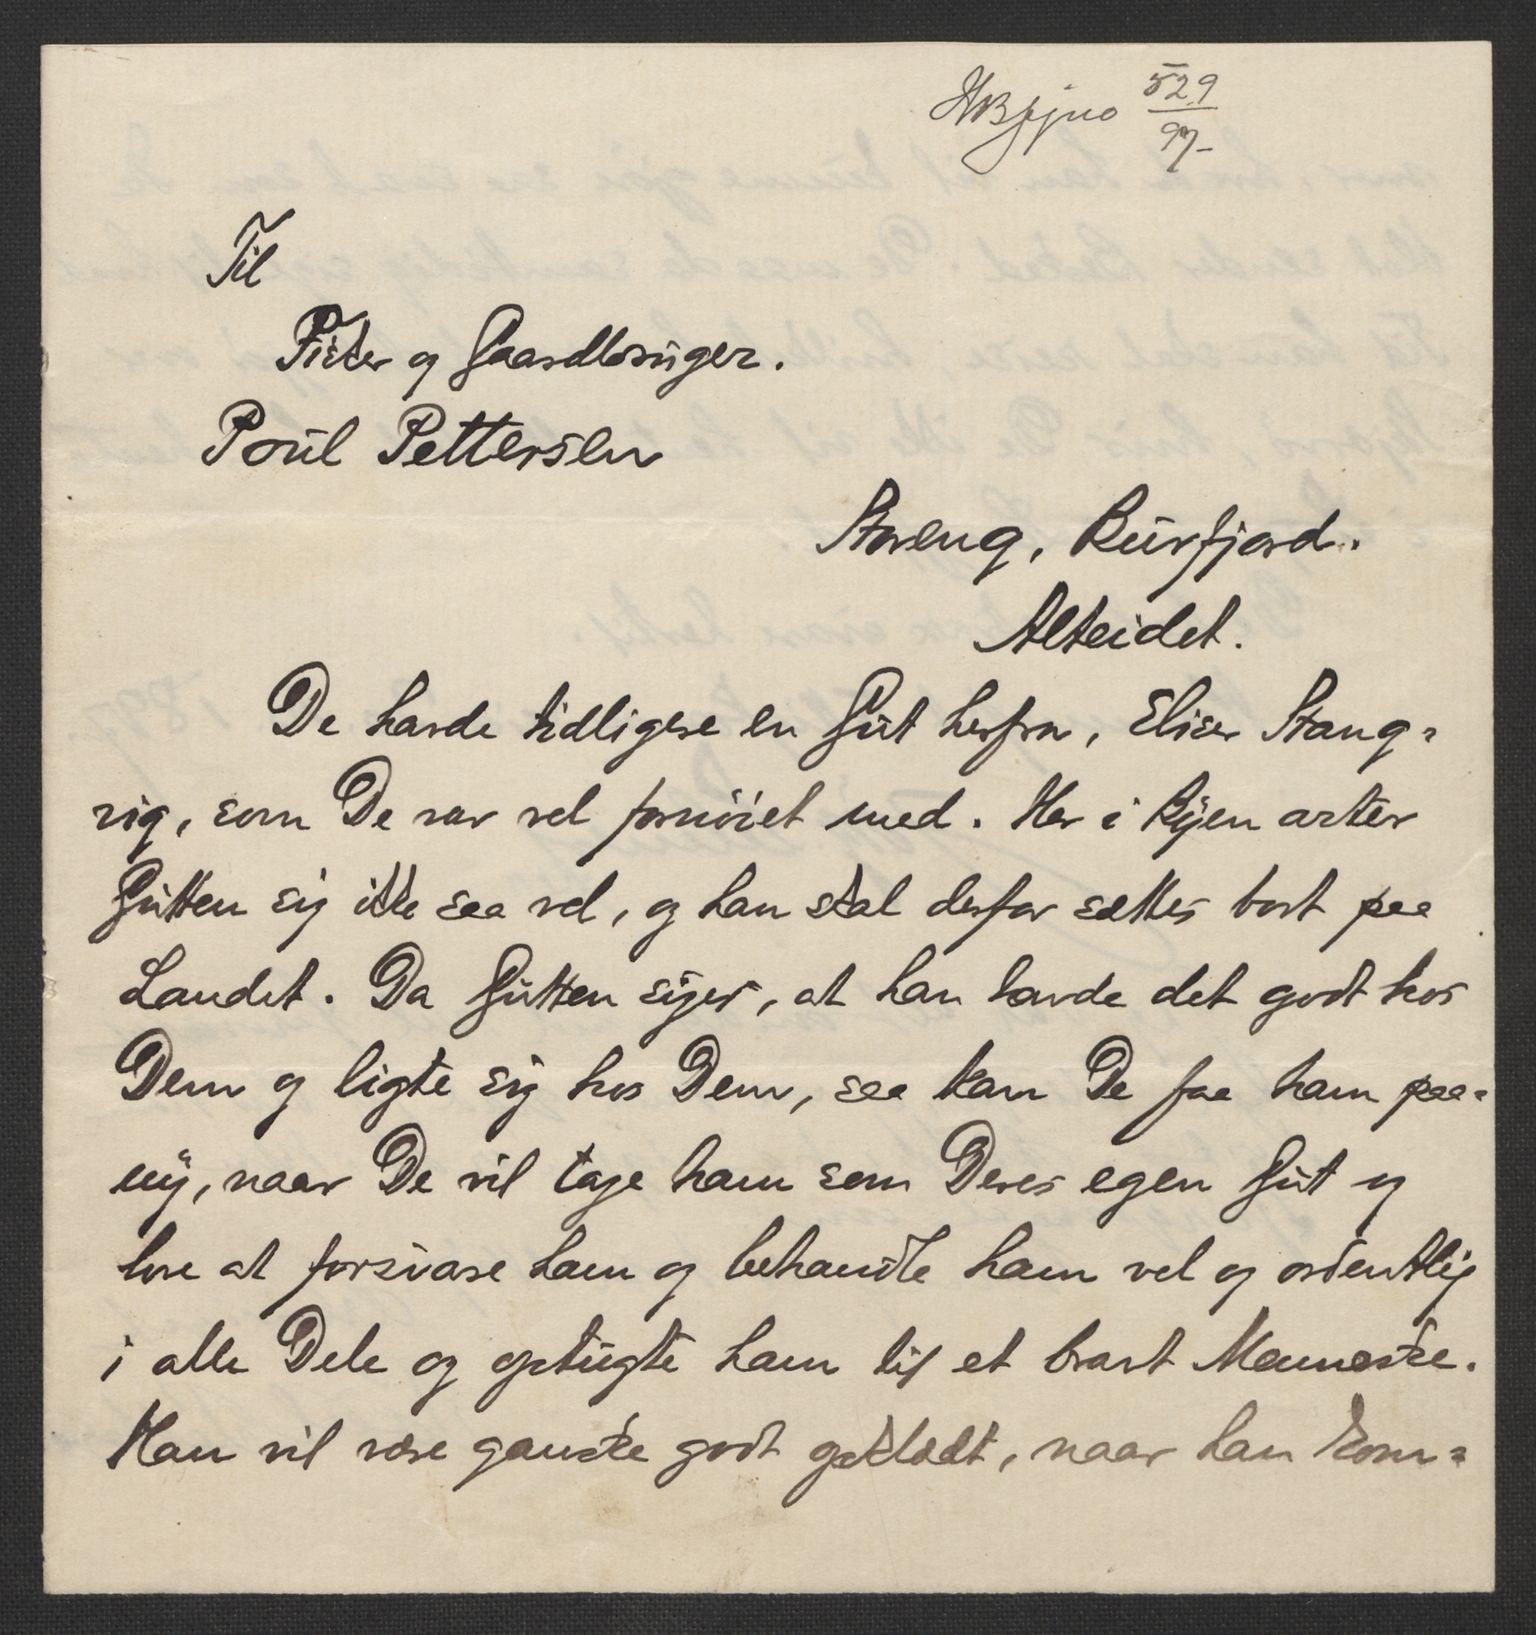 529
97-
Til
Fisker og Gaardbruger.
Poul Pettersen
Storeng, Burfjord.
Alteidet.
De havde tidligere en Gut herfra, Eliser Stang-
vig, som De var vel fornöiet med. Her i Byen arter
Gutten sig ikke saa vel, og han skal derfor sættes bort paa
Landet. Da Gutten siger, at han havde det godt hos
Dem og ligte sig hos Dem, saa kan De faa ham paa-
ny, naar De vil tage ham som Deres egen Gut og
love at forsvare ham og behandle ham vel og ordentlig
i alle Dele og optugte ham til et bravt Menneske.
Han vil være ganske godt opklædt, naar han kom-